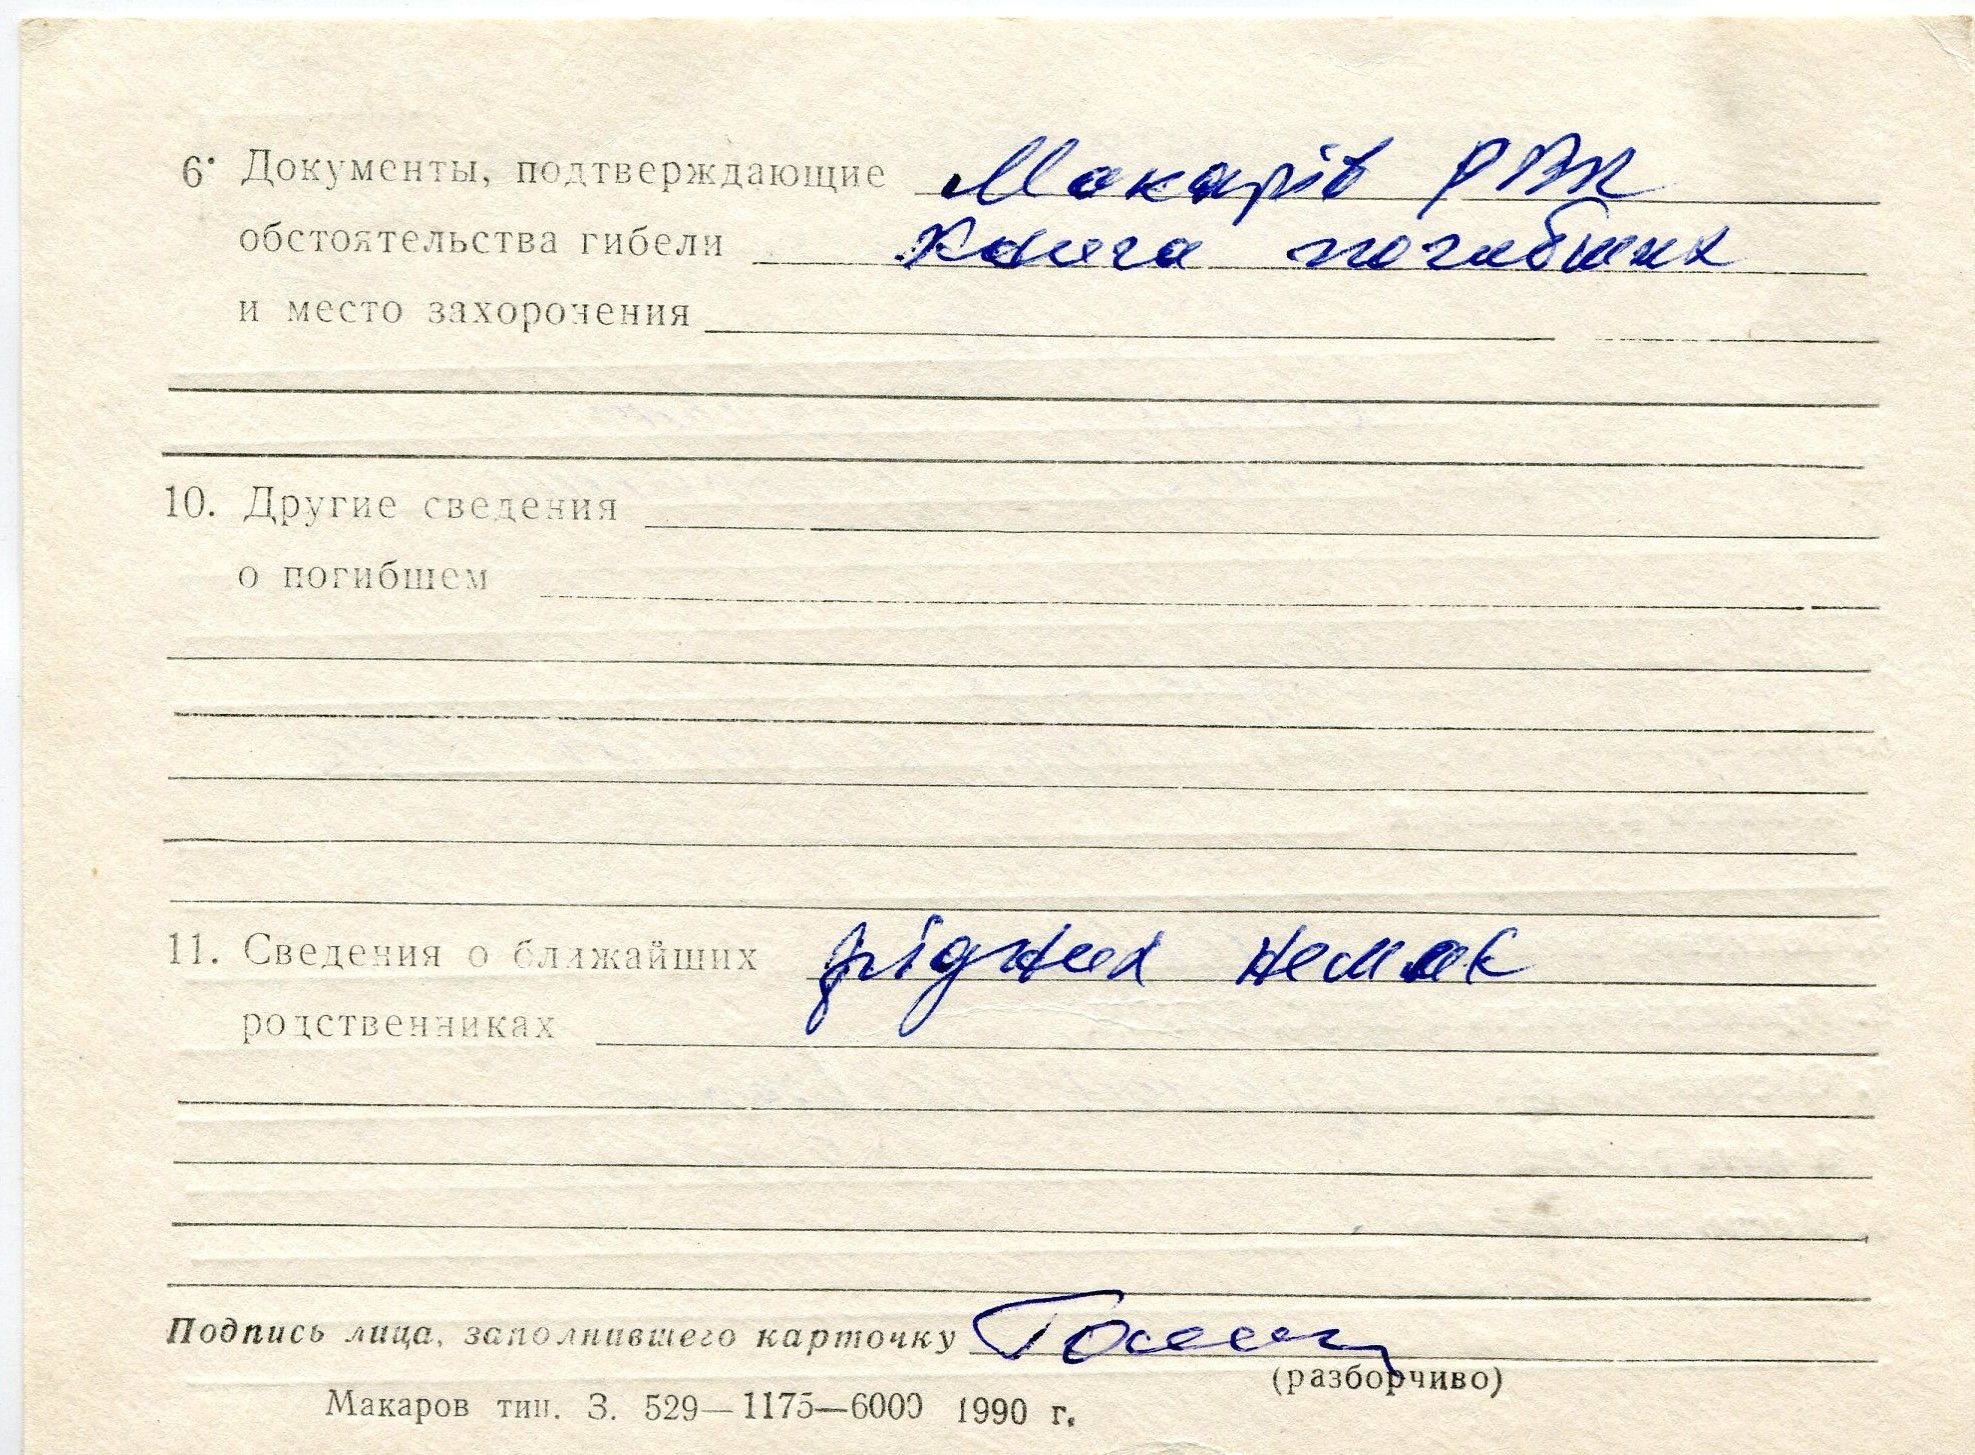 6. Документы, подтверждающие Макарів РВК
обстоятельства гибели Книга погибших
и место захоронения
10. Другие сведения
о погибшем
11. Сведения о ближайших рідних немає
родственниках
Подпись лица, заполнившего карточку
(разборчиво)
Макаров тип. З. 529—1175—6000 1990 г.